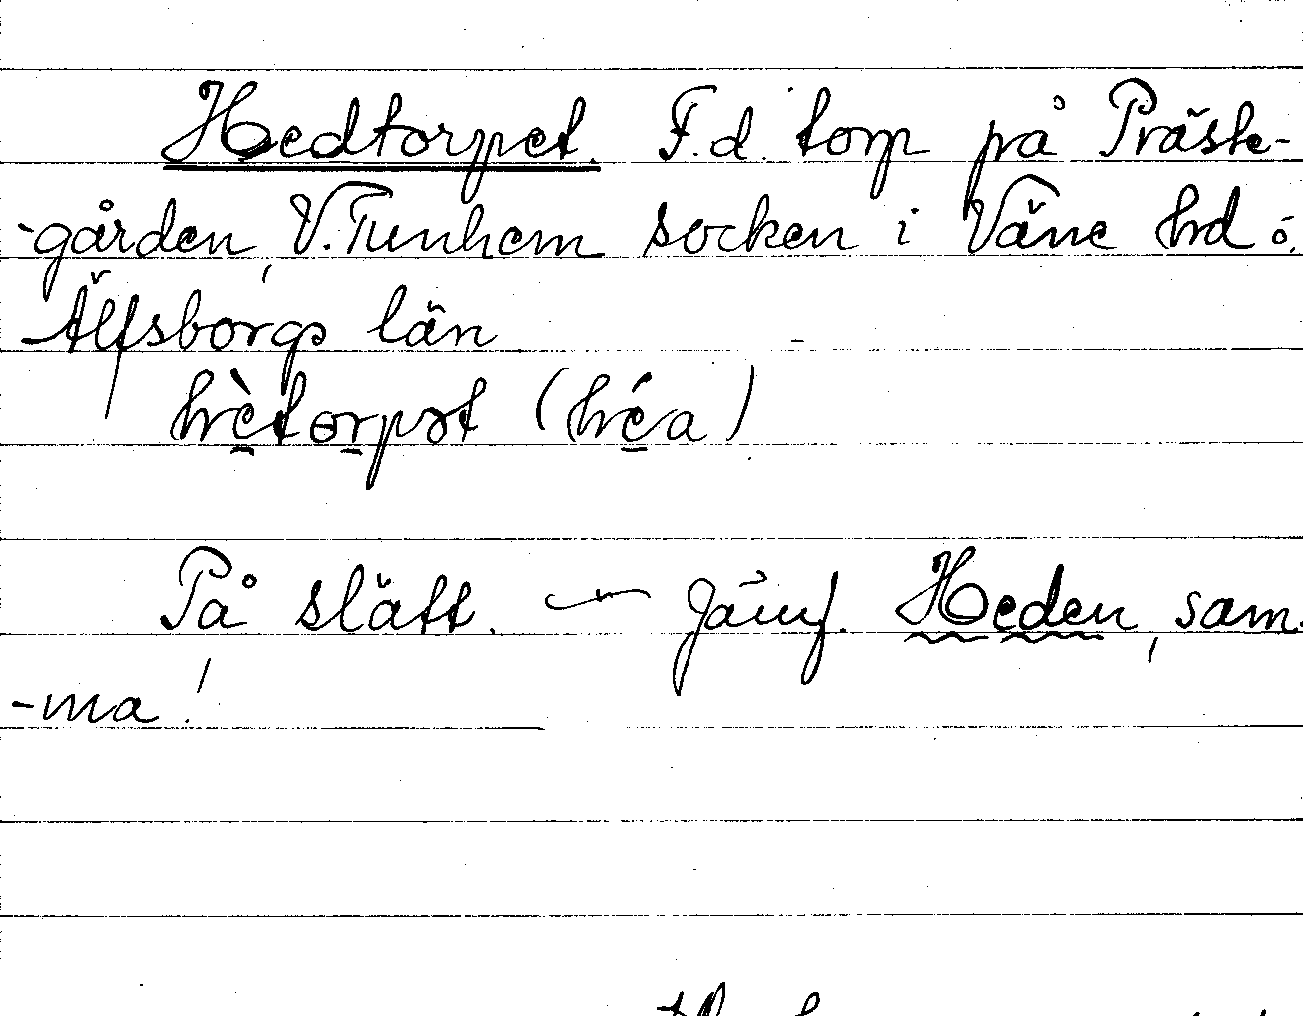 Hedtorpet. F.d. torp på Präste-
-gården, V. Tunhem socken i Väne hd ö.
Älfsborgs län
hètorpət (héa)
På slätt. ~ Jämf. Heden, sam-
-ma!